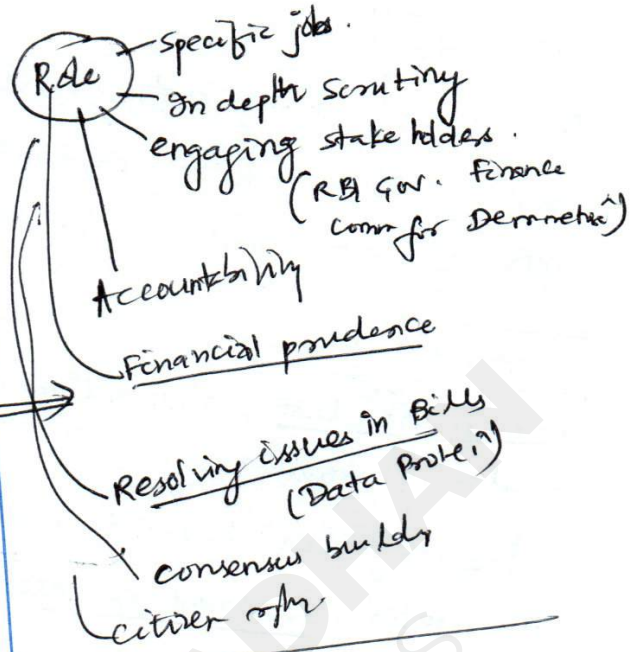 Role
specific jobs.
In depth scrutiny
engaging stake holders.
(RBI Gov. Finance
comm for Demonetisⁿ)
Accountability
Financial prudence
Resolving issues in Bills
(Data Prote.ⁿ)
consensus buildg
citizen
DHAN
S